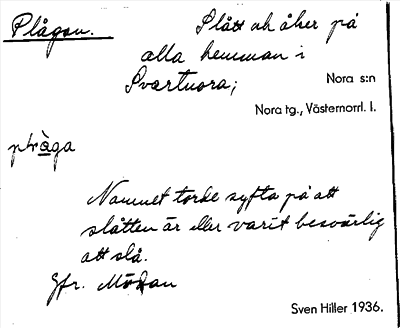 Plågan. Slått och åker på
alla hemman i
Svartnora; Nora s:n
Nora tg., Västernorrl. l.
plàga
Namnet torde syfta på att
slåtten är eller varit besvärlig
att slå.
Jfr. Mödan
Sven Hiller 1936.